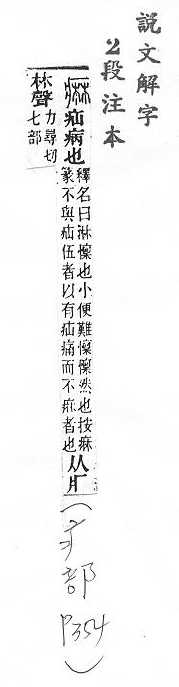 説文解字
2段注本
痳疝病也
釋名曰淋懍也小便難懍懍然也按痳
篆不與疝伍者以有疝痛而不痳者也
从疒
(疒部 P354)
林聲
力尋切
七部